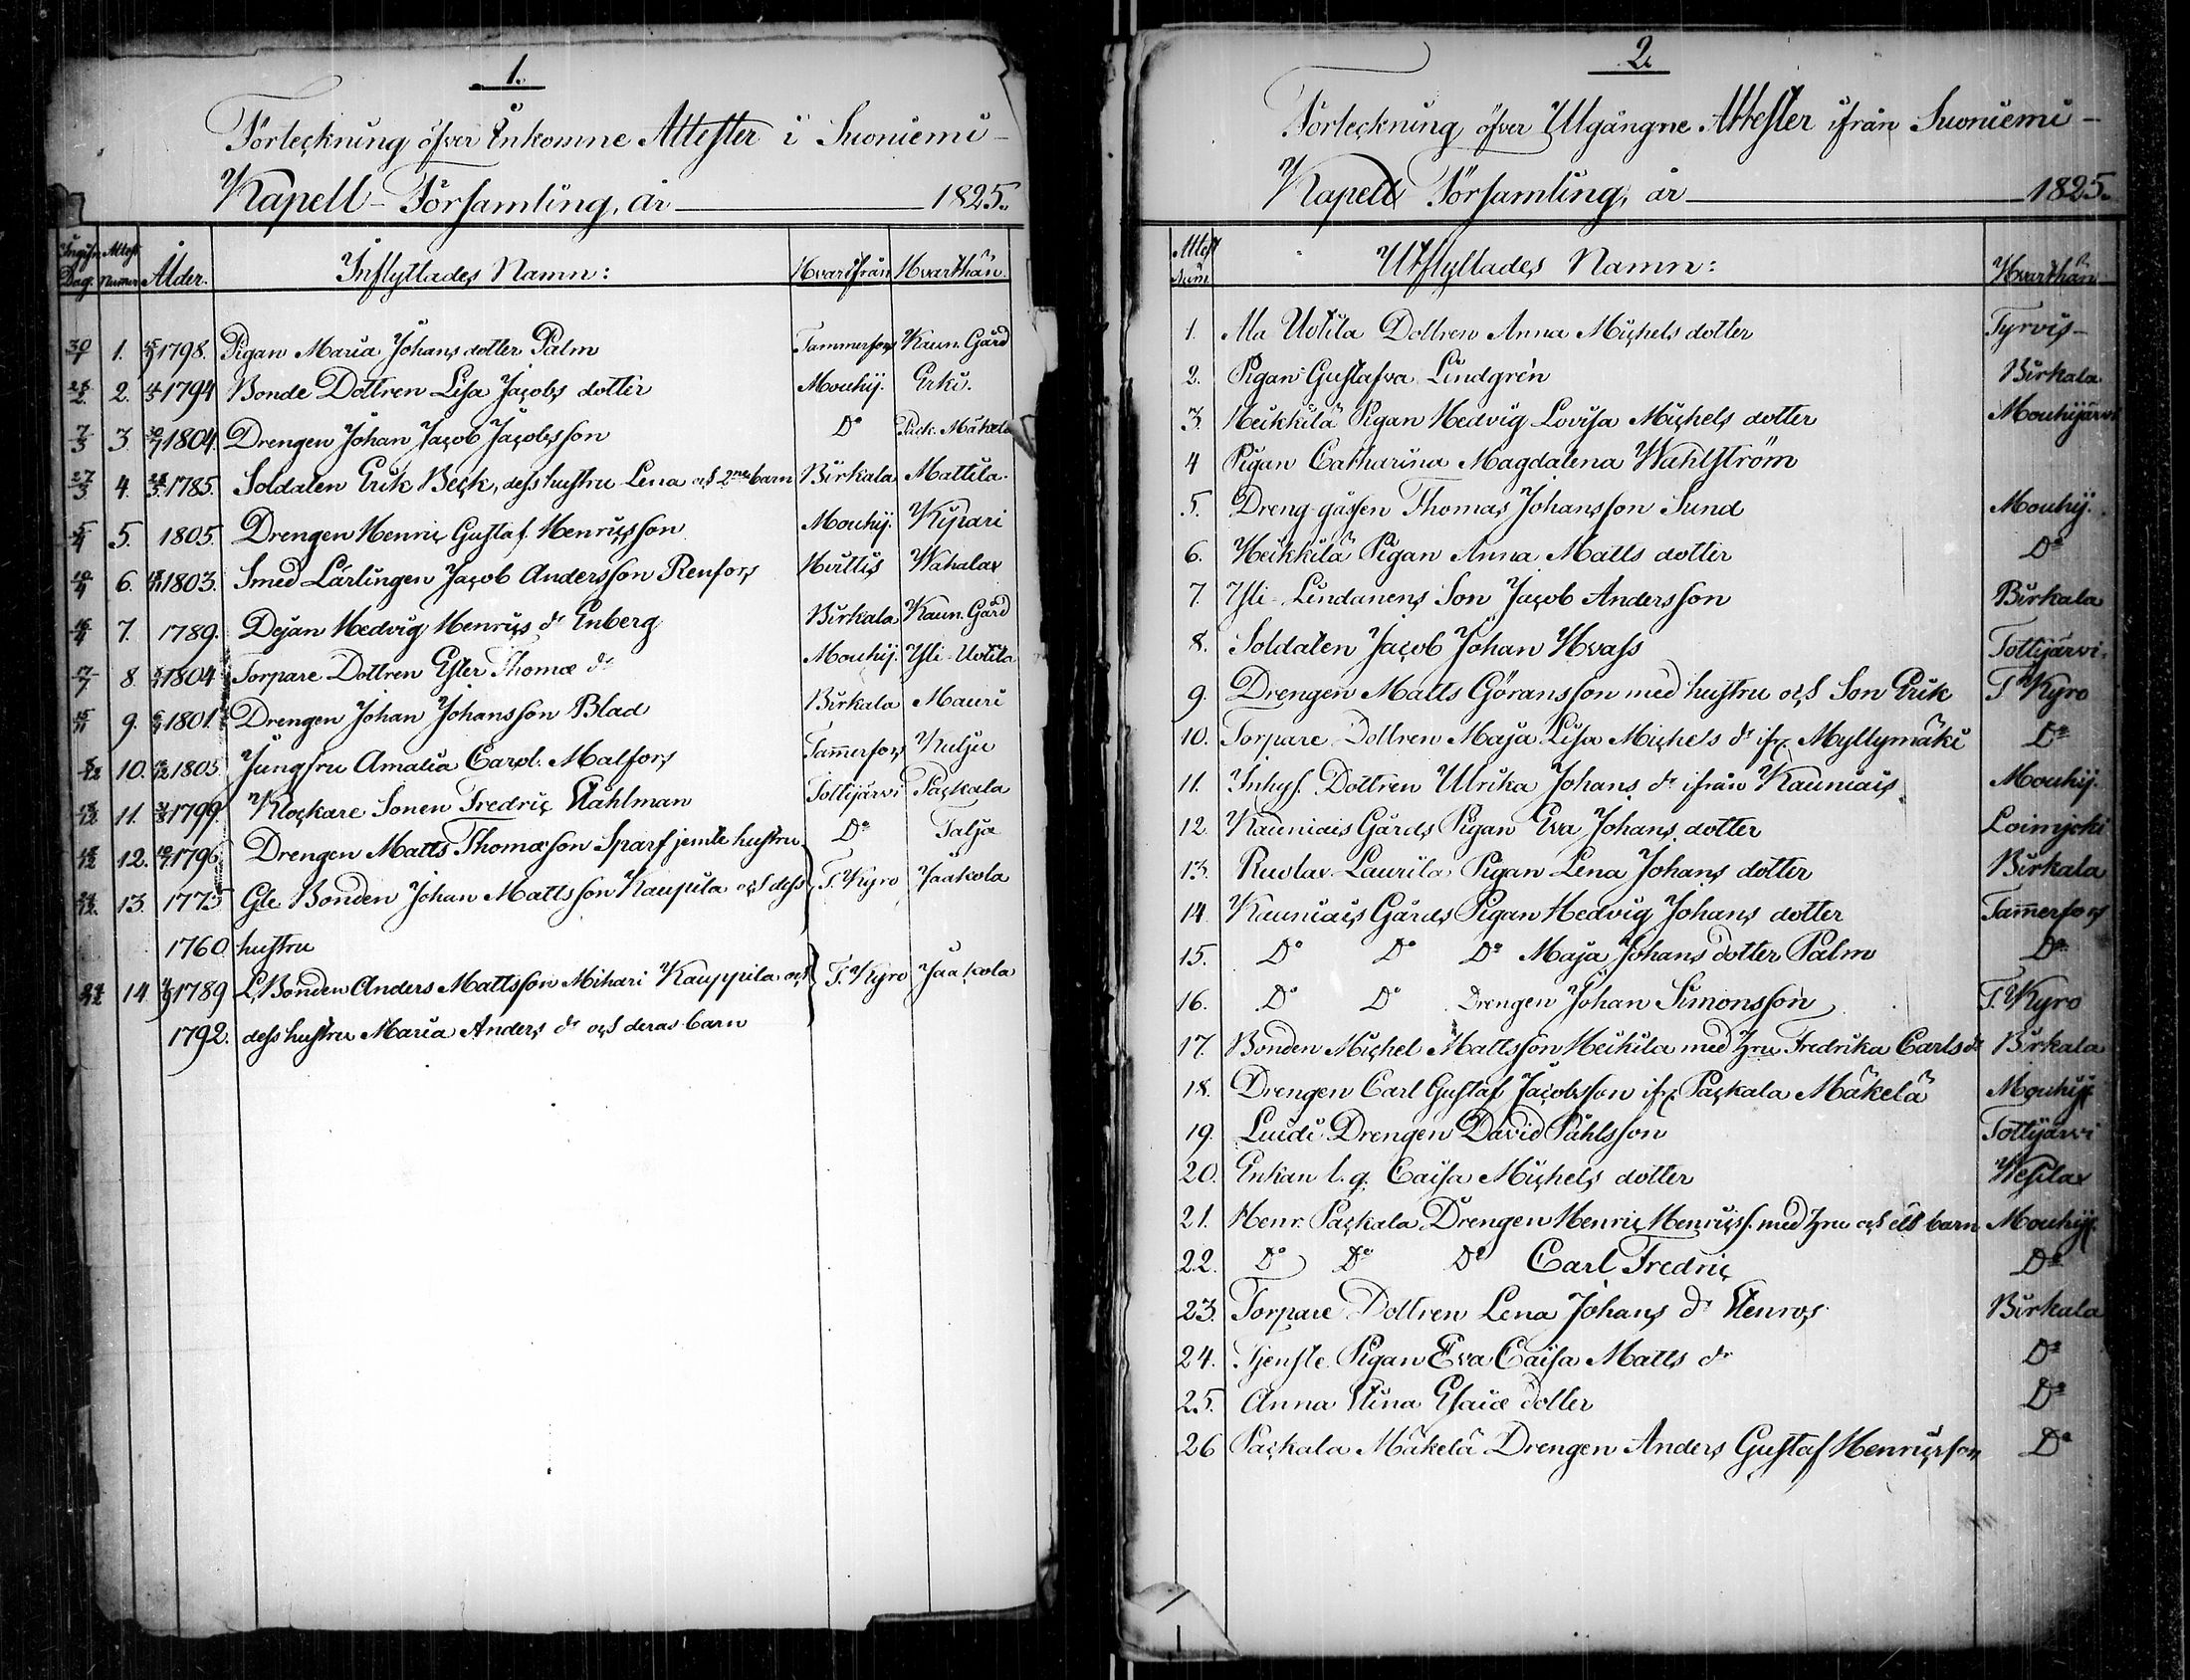 1.
Förteckning öfver Inkomne Attester i Suoniemi
Kapell-Församling, år 1825.
Attest Numer Ålder. Inflyttades Namn: Hvarifrån Hvarthän.
30/1 1. 1798. Pigan Maria Johans dotter Palm Tammerfors Kaun. Gård
2. 1794 Bonde Dottren Lisa Jacobs dotter Mouhij. Erki.
7/3 3. 1804. Drengen Johan Jacob Jacobsson Do Pack. Mäkelä
27/3 4. 1785. Soldaten Erik Beck, dess hustru Lena och 2ne barn Birkala Mattila.
5/4 5. 1805. Drengen Henric Gustaf Henricsson Mouhij. Kipari
10/4 6. 1803. Smed Lärlingen Jacob Andersson Renfors Hvittis Wahalax
7. 1789. Dejan Hedvig Henrics dr Enberg Birkala Kaun. Gård
8 1804 Torpare Dottren Ester Thomæ dr Mouhij. Yli-Uotila
15/11 9. 1801. Drengen Johan Johansson Blad Birkala Mauri
10. 1805 Jungfru Amalia Carol. Malfors Tammerfors Kulju
11. 1799 Klockare Sonen Fredric Ståhlman Tottijärvi Packala
12. 1796 Drengen Matts Thomæson Sparf jemte hustru Do Talja
13. 1775 Gle Bonden Johan Mattsson Kaupila och dess T. Kyro Jaakola
1760 hustru
14 1789 L. Bonden Anders Mattsson Mihari Kauppila och T. Kyro Jaakola
1792. dess hustru Maria Anders dr och deras barn
2.
Förteckning öfver Utgångne Attester ifrån Suoniemi
Kapell Församling, år 1825.
Attest Num. Utflyttades Namn: Hvarthän
1. Ala Uotila Dottren Anna Michels dotter Tyrvis
2. Pigan Gustafva Lindgrén Birkala
3. Heikkilä Pigan Hedvig Lovisa Michels dotter Mouhijärvi
4 Pigan Catharina Magdalena Wahlström
5. Dreng-gåssen Thomas Johansson Sund Mouhij.
6. Heikkilä Pigan Anna Matts dotter Do
7. Yli-Lindanens Son Jacob Andersson Birkala
8. Soldaten Jacob Johan Hvass Tottijärvi.
9. Drengen Matts Göransson med hustru och Son Erik T Kyro
10. Torpare Dottren Maja Lisa Michels dr ifr. Myllymäki Do
11. Inhys. Dottren Ulrika Johans dr ifrån Kauniais Mouhij.
12. Kauniais Gårds Pigan Eva Johans dotter Loimjoki
13. Ruolax Laurila Pigan Lena Johans dotter Birkala
14. Kauniais Gårds Pigan Hedvig Johans dotter Tammerfors
15. Do Do Do Maja Johans dotter Palm Do
16. Do Do Drengen Johan Simonsson T. Kyro
17. Bonden Michel Mattsson Heikila med hru Fredrika Carls dr Birkala
18. Drengen Carl Gustaf Jacobsson ifr. Packala Mäkelä Mouhij.
19. Luidi Drengen David Påhlsson Tottijärvi
20. Enkan t. q. Caisa Michels dotter Wesilax
21. Henr. Packala Drengen Henric Henricss. med hru och ett barn Mouhij.
22. Do Do Do Carl Fredric Do
23. Torpare Dottren Lena Johans dr Stenros Birkala
24. Tjenste Pigan Eva Caisa Matts dr Do
25. Anna Stina Esaiæ dotter Do
26 Packala Mäkelä Drengen Anders Gustaf Henricsson Do